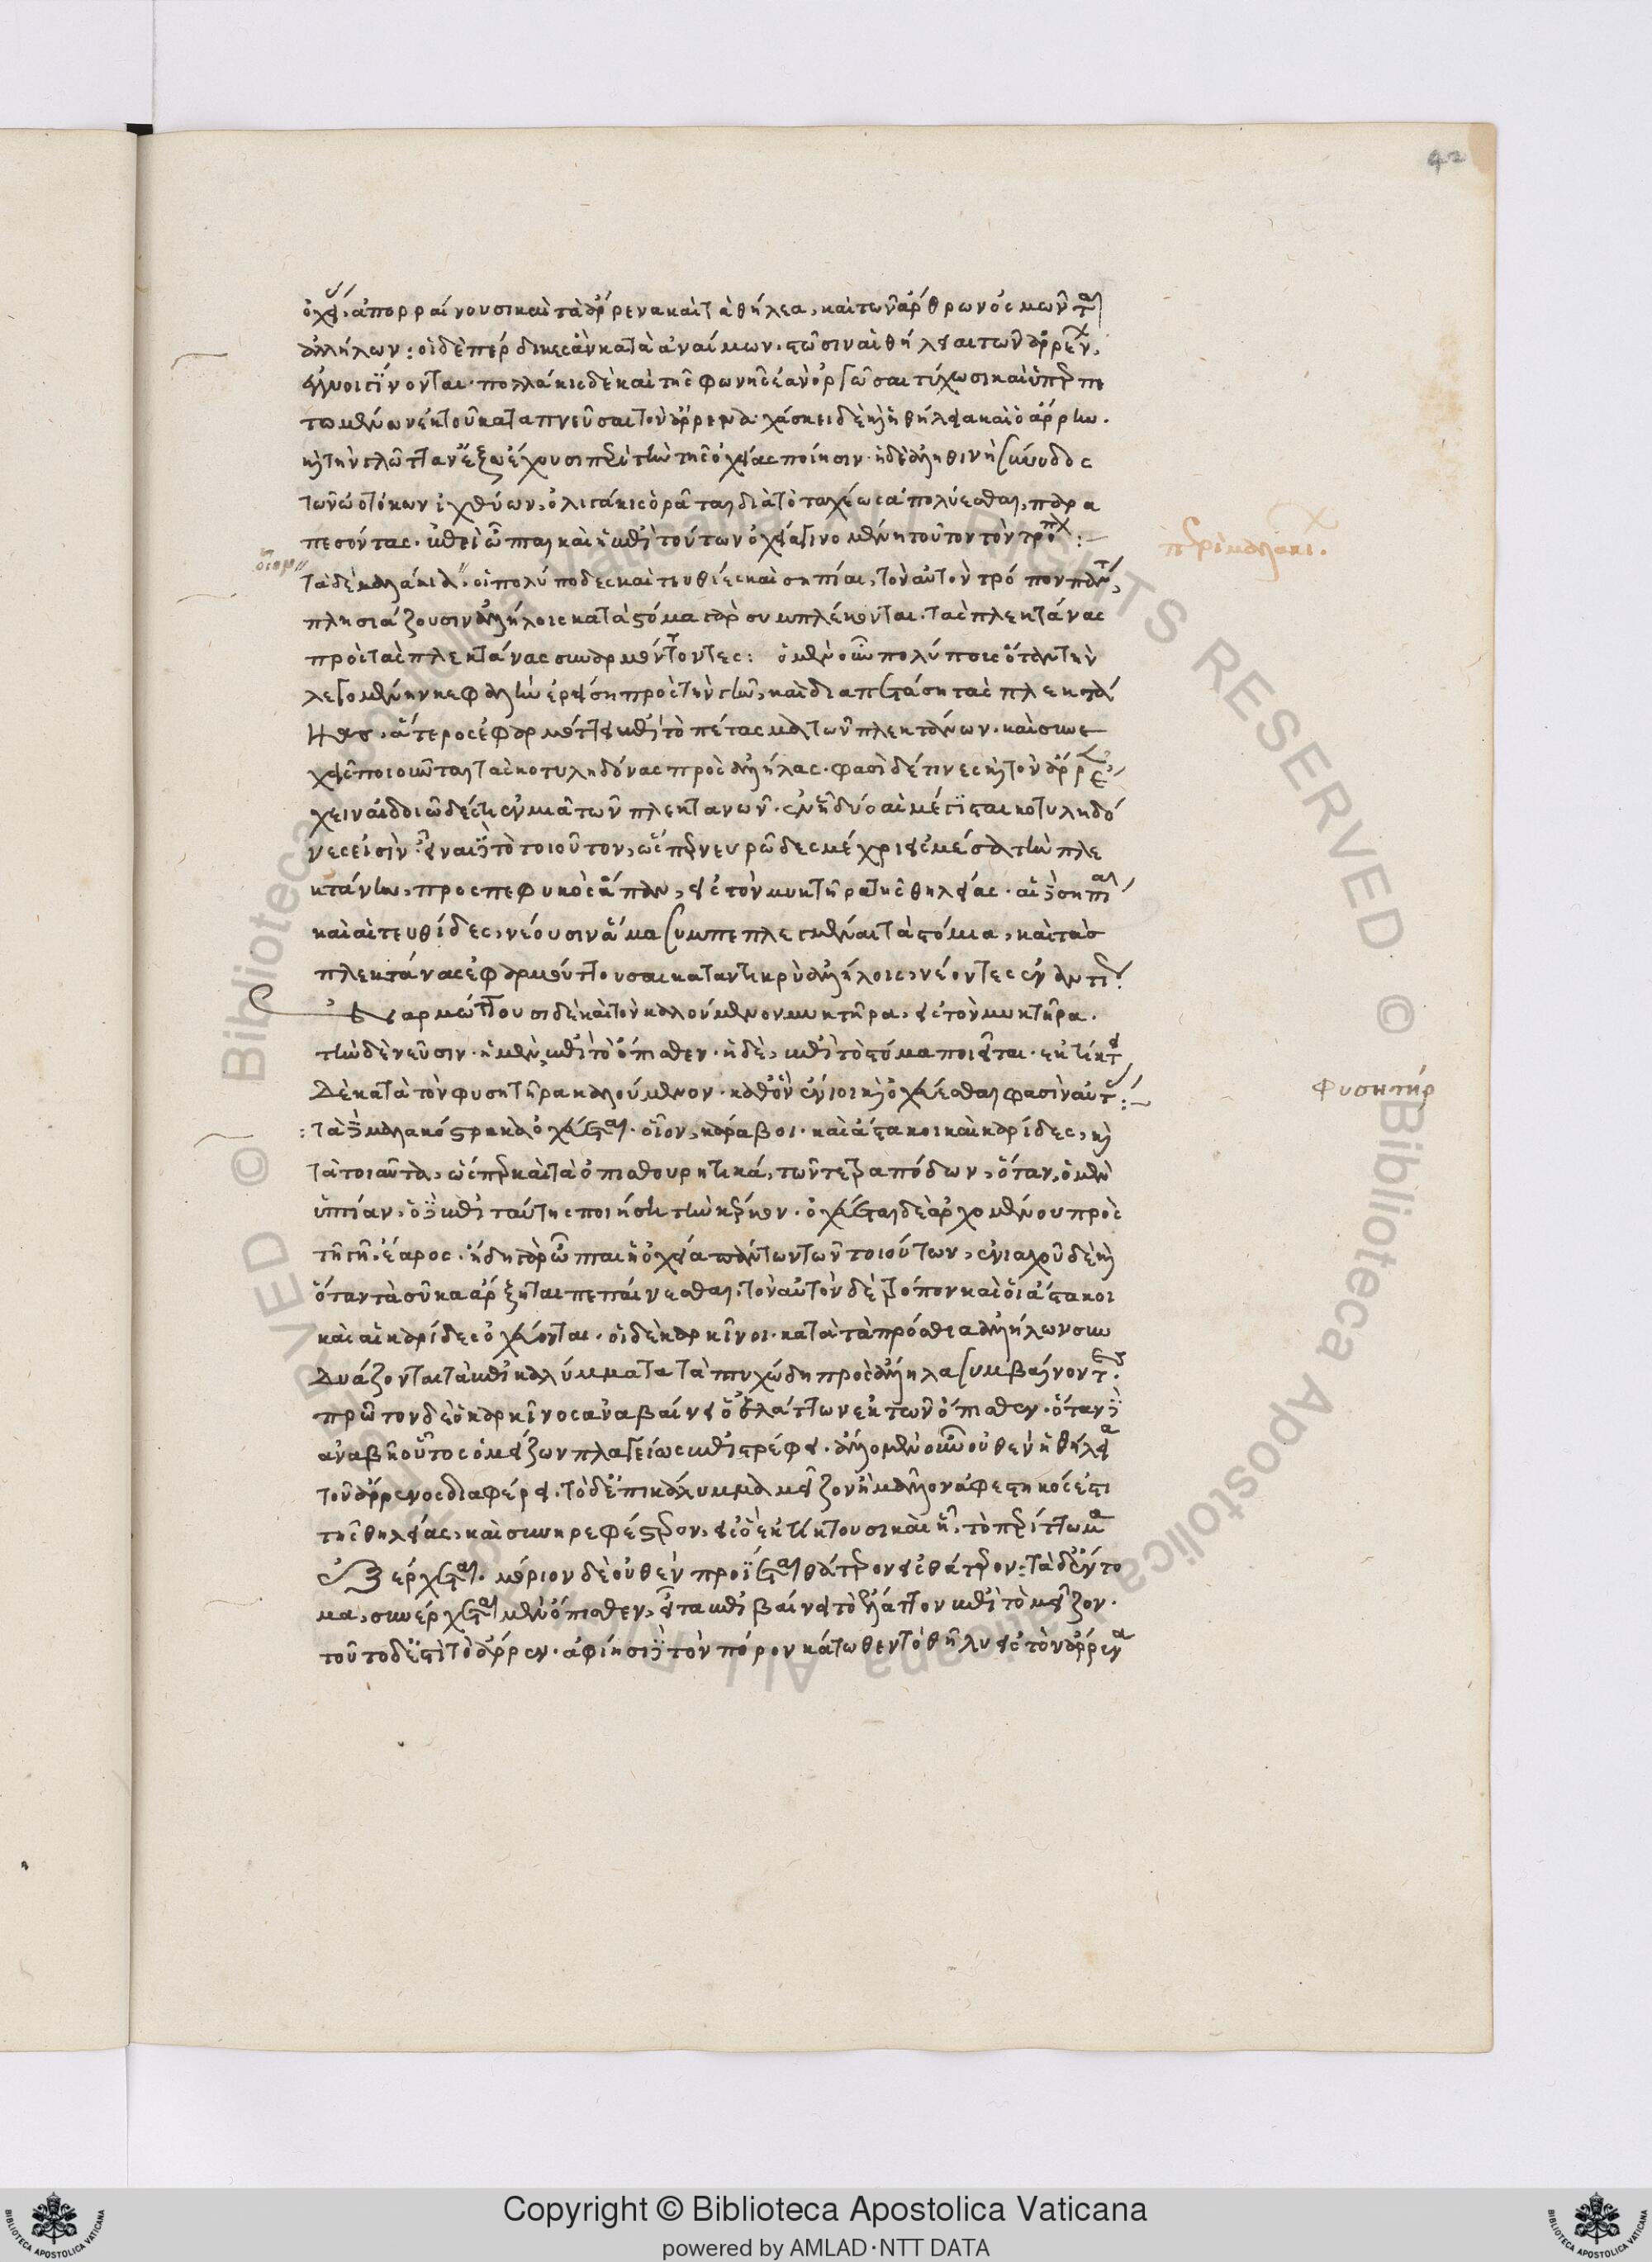 ὀχεί, ἀπορραίνουσι καὶ τὰ ἄρρενα καὶ τὰ θήλεα, καὶ τῶν ἄρθρων ὀσμῶνται
ἀλλήλων: οἱ δὲ πέρδικες ἂν κατὰ ἀναίμων. στῶσιν αἱ θήλειαι τῶν ἀρρένων,
ἔγκυοι γίνονται· πολλάκις δὲ καὶ τῆς φωνῆς ἐὰν ὀργῶσαι τύχωσι καὶ ὑπερπε
τομένων ἐκ τοῦ καταπνεῦσαι τὸν ἄρρενα· χάσκει δὲ καὶ ἡ θήλεια καὶ ὁ ἄρρην.
καὶ τὴν γλῶτταν ἔξω ἔχουσι περὶ τὴν τῆς ὀχείας ποίησιν· ἡ δὲ ἀληθινὴ σύνοδος
τῶν ὠοτόκων ἰχθύων, ὀλιγάκις ὁρᾶται διὰ τὸ ταχέως ἀπολύεσθαι, παρα
πεσόντας· ἐπεὶ ὦπται καὶ ἡ ἐπὶ τούτων ὀχεία γινομένη τοῦτον τὸν τρόπον:
τὰ δὲ μαλάκια. οἱ πολύποδες καὶ τευθίες καὶ σηπίαι, τὸν αὐτὸν τρόπον πάντα,
πλησιάζουσιν ἀλλήλοις κατὰ στόμα γὰρ συμπλέκονται. τὰς πλεκτάνας
πρὸς τὰς πλεκτάνας συναρμόττοντες: ὁ μὲν οὖν πολύπους ὅταν τὴν
λεγομένην κεφαλὴν ἐρείσῃ πρὸς τὴν γῆν, καὶ διαπετάσῃ τὰς πλεκτά
νας. ἅτερος ἐφαρμόττει ἐπὶ τὸ πέτασμα τῶν πλεκτάνων. καὶ συνε
χεῖς ποιοῦνται τὰς κοτυληδόνας πρὸς ἀλλήλας. φασὶ δέ τινες καὶ τὸν ἄρρε ἔ
χειν αἰδοιῶδές τι ἐν μιᾷ τῶν πλεκτανῶν. ἐν ᾗ δύο αἱ μέγισται κοτυληδό
νες εἰσίν. εἶναι δὲ τὸ τοιοῦτον, ὥσπερ νευρῶδες μέχρι εἰς μέσα τὴν πλε
κτάνην, προσπεφυκὸς ἅπαν, εἰς τὸν μυκτῆρα τῆς θηλείας. αἱ δὲ σηπίαι
καὶ αἱ τευθίδες, νέουσιν ἅμα συμπεπλεγμέναι τὰ στόμια, καὶ τὰς
πλεκτάνας ἐφαρμόττουσαι καταντικρὺ ἀλλήλοις, νέοντες ἐναντίως.
ἐναρμόττουσι δὲ καὶ τὸν καλούμενον μυκτῆρα, εἰς τὸν μυκτῆρα.
τὴν δὲ νεῦσιν. ἡ μὲν, ἐπὶ τὸ ὄπισθεν. ἡ δὲ, ἐπὶ τὸ στόμα ποιεῖται. ἐκτίκτει
δὲ κατὰ τὸν φυσητῆρα καλούμενον. καθ' ὃν ἔνιοι καὶ ὀχεύεσθαι φασὶν αὐτάς:
τὰ δὲ μαλακόστρακα ὀχεύεται. οἷον, κάραβοι. καὶ ἀστακοὶ καὶ καρίδες, καὶ
τὰ τοιαῦτα, ὥσπερ καὶ τὰ ὀπισθουρητικά, τῶν τετραπόδων, ὅταν, ὁ μὲν
ὑπτίαν, ὁ δὲ ἐπὶ ταύτης ποιήσῃ τὴν κέρκον. ὀχεύεται δὲ ἀρχομένου πρὸς
τῇ γῇ, ἔαρος. ἤδη γὰρ ὦπται ἡ ὀχεία πάντων τῶν τοιούτων, ἐνιαχοῦ δὲ καὶ
ὅταν τὰ σῦκα ἄρξηται πεπαίνεσθαι. τὸν αὐτὸν δὲ τρόπον καὶ οἱ ἀστακοὶ
καὶ αἱ καρίδες ὀχεύονται. οἱ δὲ καρκῖνοι. κατὰ τὰ πρόσθια ἀλλήλων συν
δυάζονται τὰ ἐπικαλύμματα τὰ πτυχώδη πρὸς ἄλληλα συμβαίνοντες.
πρῶτον δὲ ὁ καρκῖνος ἀναβαίνει ὁ ἐλάττων ἐκ τῶν ὄπισθεν. ὅταν δὲ
ἀναβῇ οὗτος ὁ μείζων πλαγίως ἐπιστρέφει. ἄλλο μὲν οὖν οὐθὲν ἡ θήλεια
τοῦ ἄρρενος διαφέρει. τὸ δὲ ἐπικάλυμμα μεῖζον ἢ μᾶλλον ἀφεστηκός ἐστι
τῆς θηλείας, καὶ συνηρεφέστερον, εἰς ὃ ἐκτίκτουσι καὶ ᾗ, τὸ περίττωμα
ἐξέρχεται. μόριον δὲ οὐθὲν προΐεται θάτερον εἰς θάτερον: τὰ δὲ ἔντο
μα, συνέρχεται μὲν ὄπισθεν, εἶτα ἐπιβαίνει τὸ ἔλαττον ἐπὶ τὸ μεῖζον.
τοῦτο δὲ ἐστὶ τὸ ἄρρεν. ἀφίησι δὲ τὸν πόρον κάτωθεν τὸ θῆλυ εἰς τὸν ἄρρενα
περὶ μαλακί.
φυσητήρ
42
Copyright © Biblioteca Apostolica Vaticana
powered by AMLAD·NTT DATA